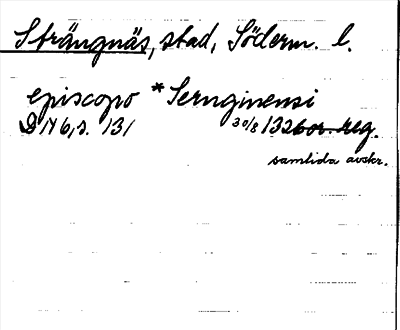 Strängnäs, stad, Söderm. l.
episcopo *Sernginensi
DN 6, s. 131 30/8 1326 or. reg.
samtida avskr.